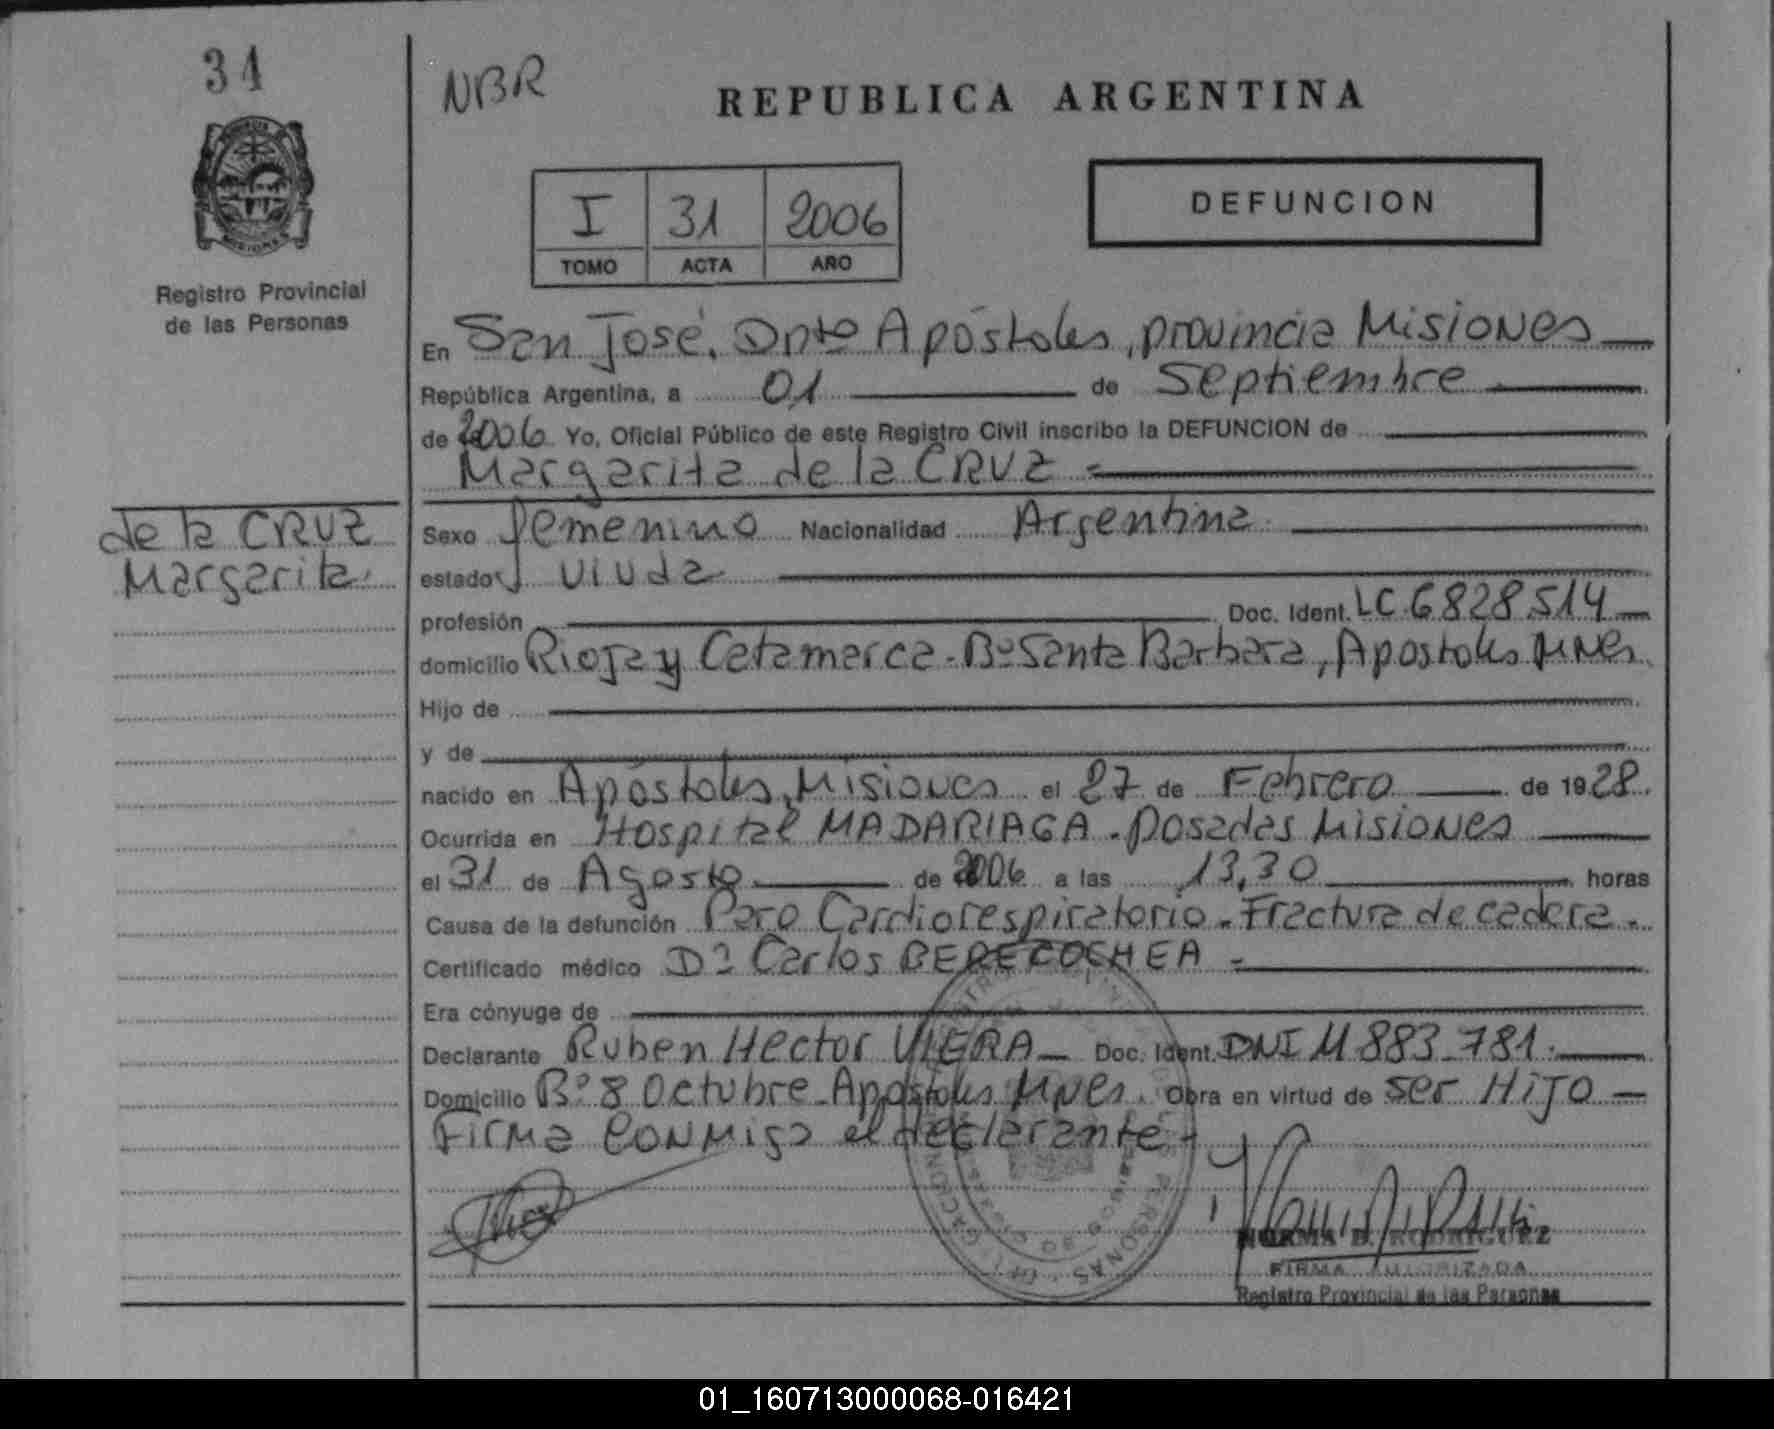 31
NBR
REPUBLICA ARGENTINA
I 31 2006
TOMO ACTA AÑO
DEFUNCION
Registro Provincial
de las Personas
En San José, Dpto Apóstoles, provincia Misiones
República Argentina, a 01 de Septiembre
de 2006 Yo, Oficial Público de este Registro Civil inscribo la DEFUNCION de
Margarita de la CRUZ
de la CRUZ
Margarita
Sexo femenino Nacionalidad Argentina
estado viuda
profesión Doc. Ident. LC 6828514
domicilio Rioja y Catamarca - Bº Santa Barbara, Apostoles Mnes.
Hijo de
y de
nacido en Apóstoles, Misiones el 27 de Febrero de 1928.
Ocurrida en Hospital MADARIAGA - Posadas Misiones
el 31 de Agosto de 2006 a las 13,30 horas
Causa de la defunción Paro Cardiorespiratorio - Fractura de cadera -
Certificado médico Dr Carlos BERECOCHEA -
Era cónyuge de
Declarante Ruben Hector VIERA - Doc. Ident. DNI 11 883-781.
Domicilio Bº 8 Octubre - Apostoles Mnes. Obra en virtud de ser HiJO -
Firma CONMigo el declarante -
NORMA B. RODRIGUEZ
FIRMA AUTORIZADA
Registro Provincial de las Personas
01_160713000068-016421